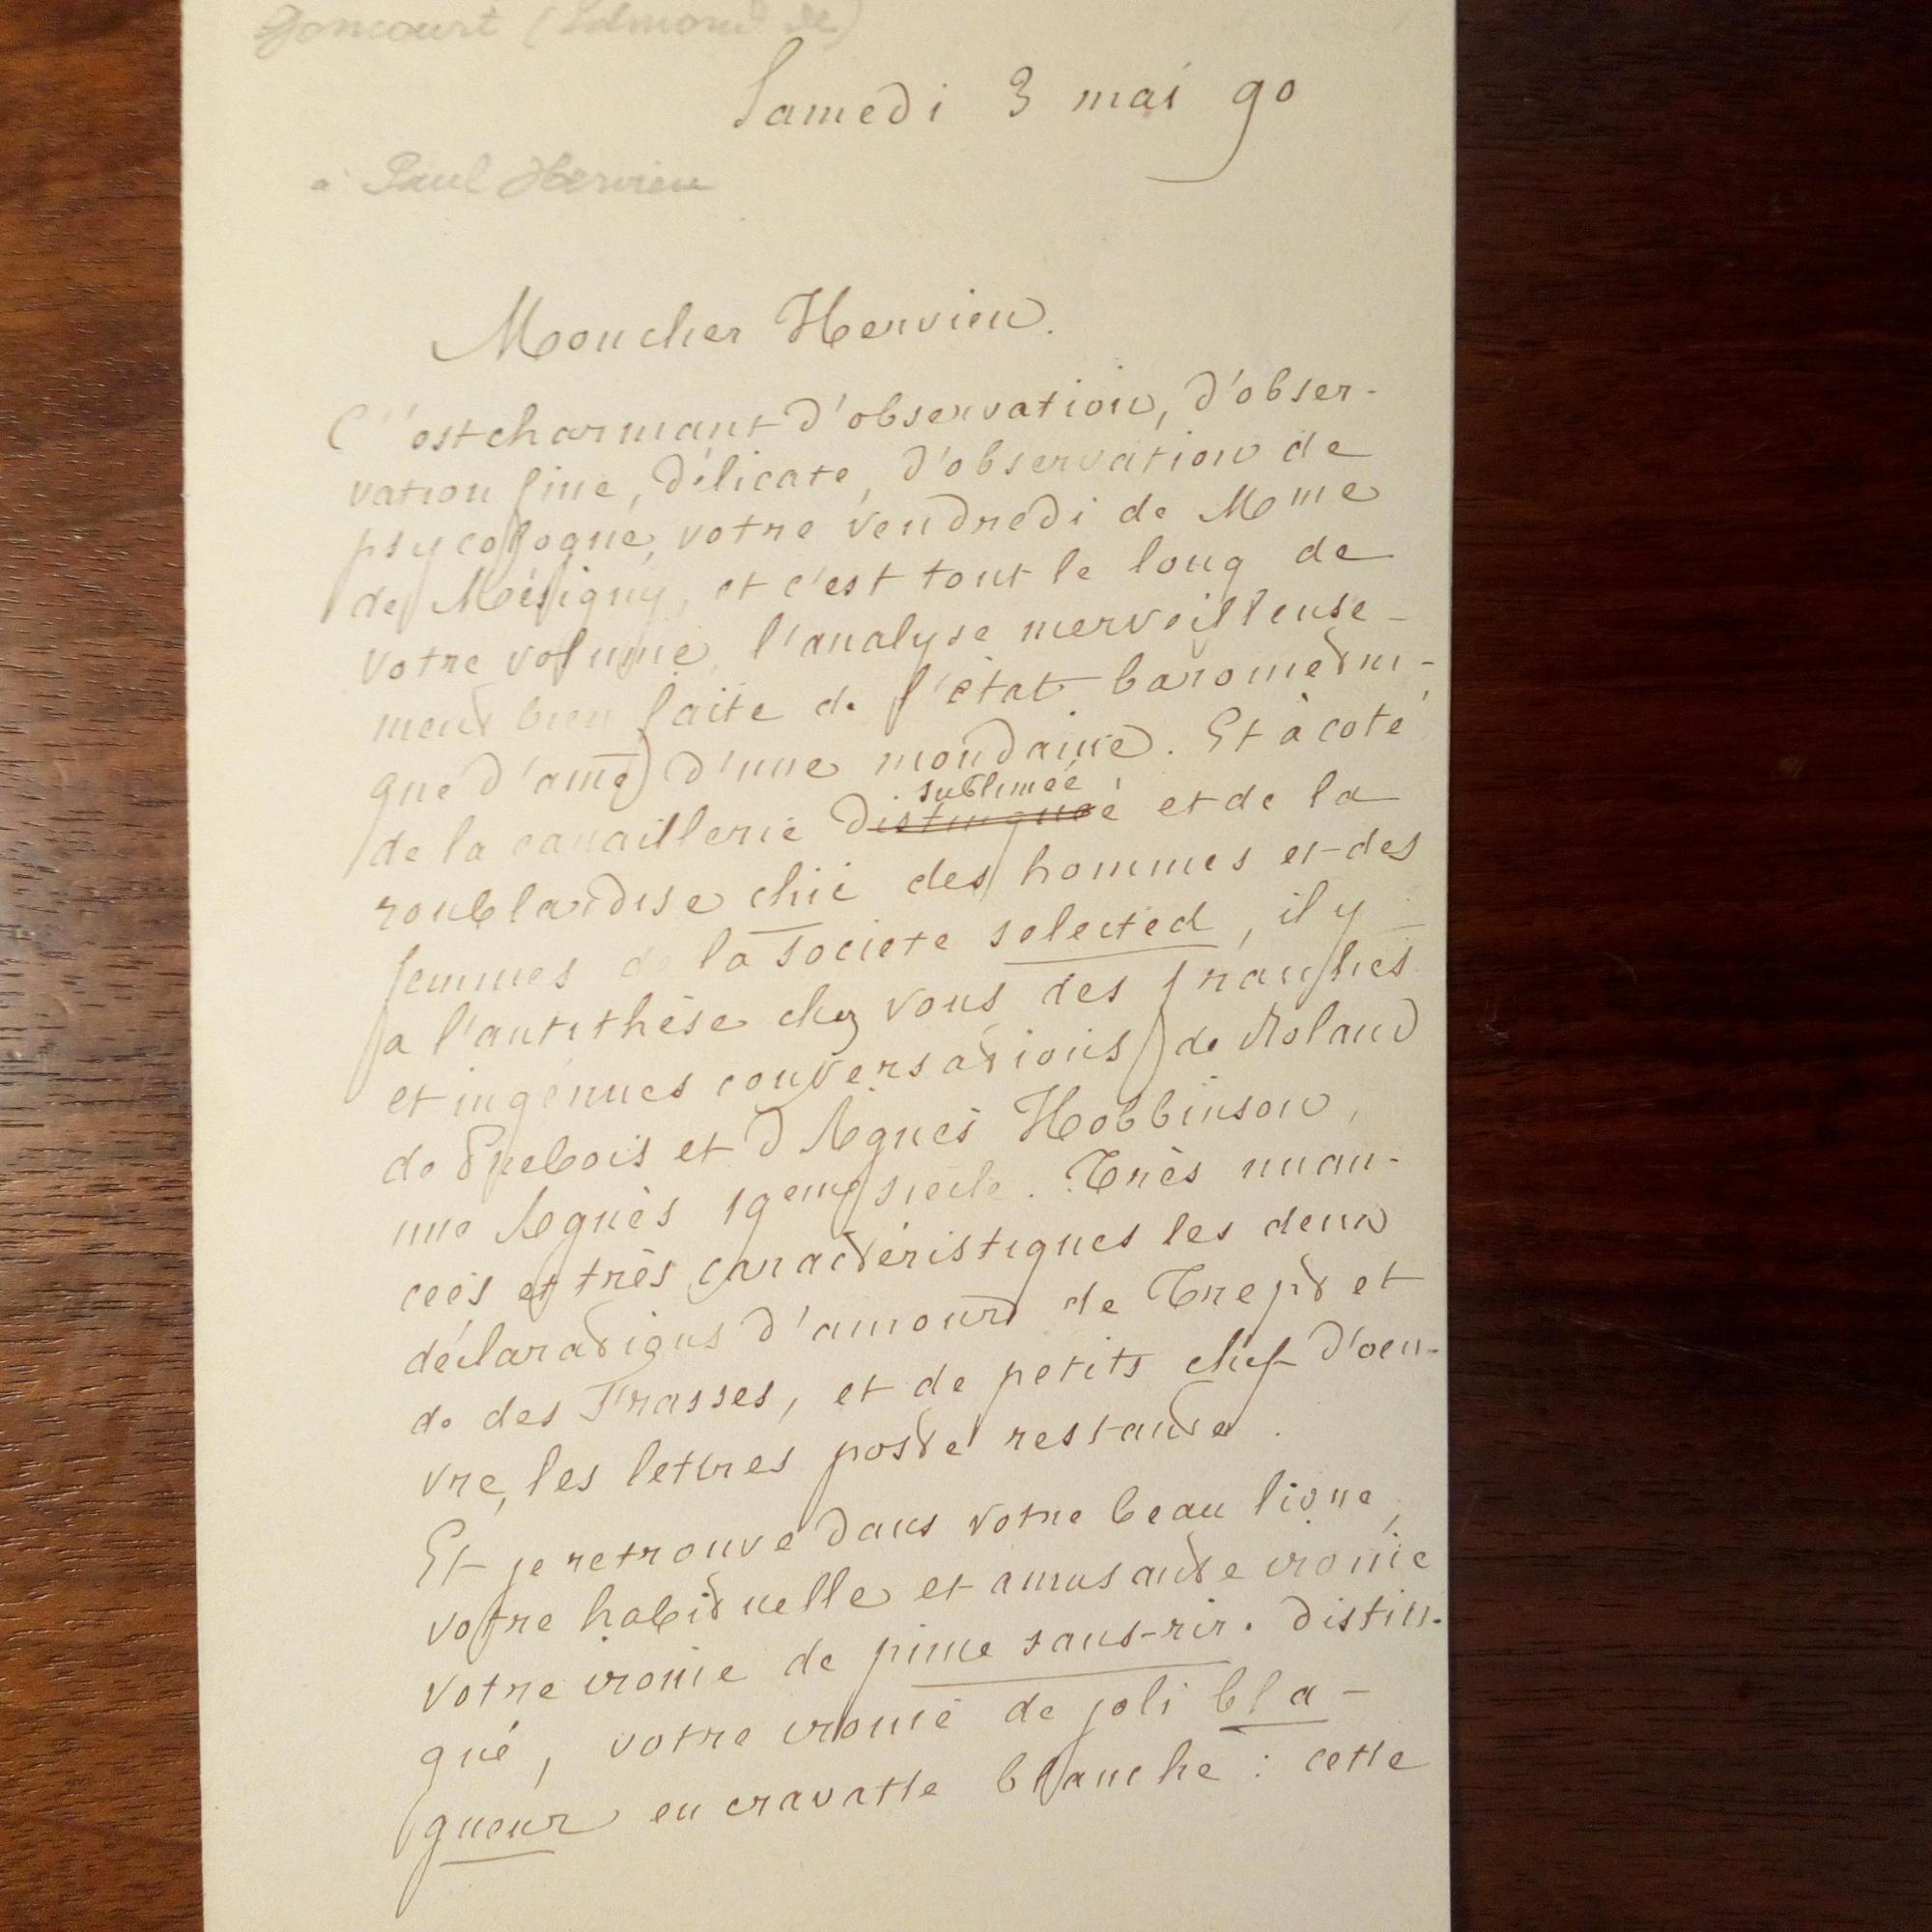 Goncourt (Edmond de)
Samedi 3 mai 90
à Paul Hervieu
Mon cher Hervieu.
C'est charmant d'observation, d'obser-
vation fine, délicate, d'observation de
psycologue, votre vendredi de Mme
de Mésigny, et c'est tout le long de
votre volume, l'analyse merveilleuse-
ment bien faite de l'état barometri-
que d'ame d'une mondaine. Et à coté
de la canaillerie distinguée sublimée et de la
roublardise chic des hommes et des
femmes de la societe selected, il y
a l'antithèse chez vous des franches
et ingénues conversations de Roland
de Puebois et d'Agnès Hobbinson,
une Agnès 19eme siecle. Très nuan-
ceés et très caractéristiques les deux
déclarations d'amour de Trept et
de des Frasses, et de petits chef d'oeu-
vre, les lettres poste restante.
Et je retrouve dans votre beau livre,
votre habituelle et amusante ironie
votre ironie de pince sans-rir. distin-
gué, votre ironie de joli bla-
gueur en cravatte blanche : cette